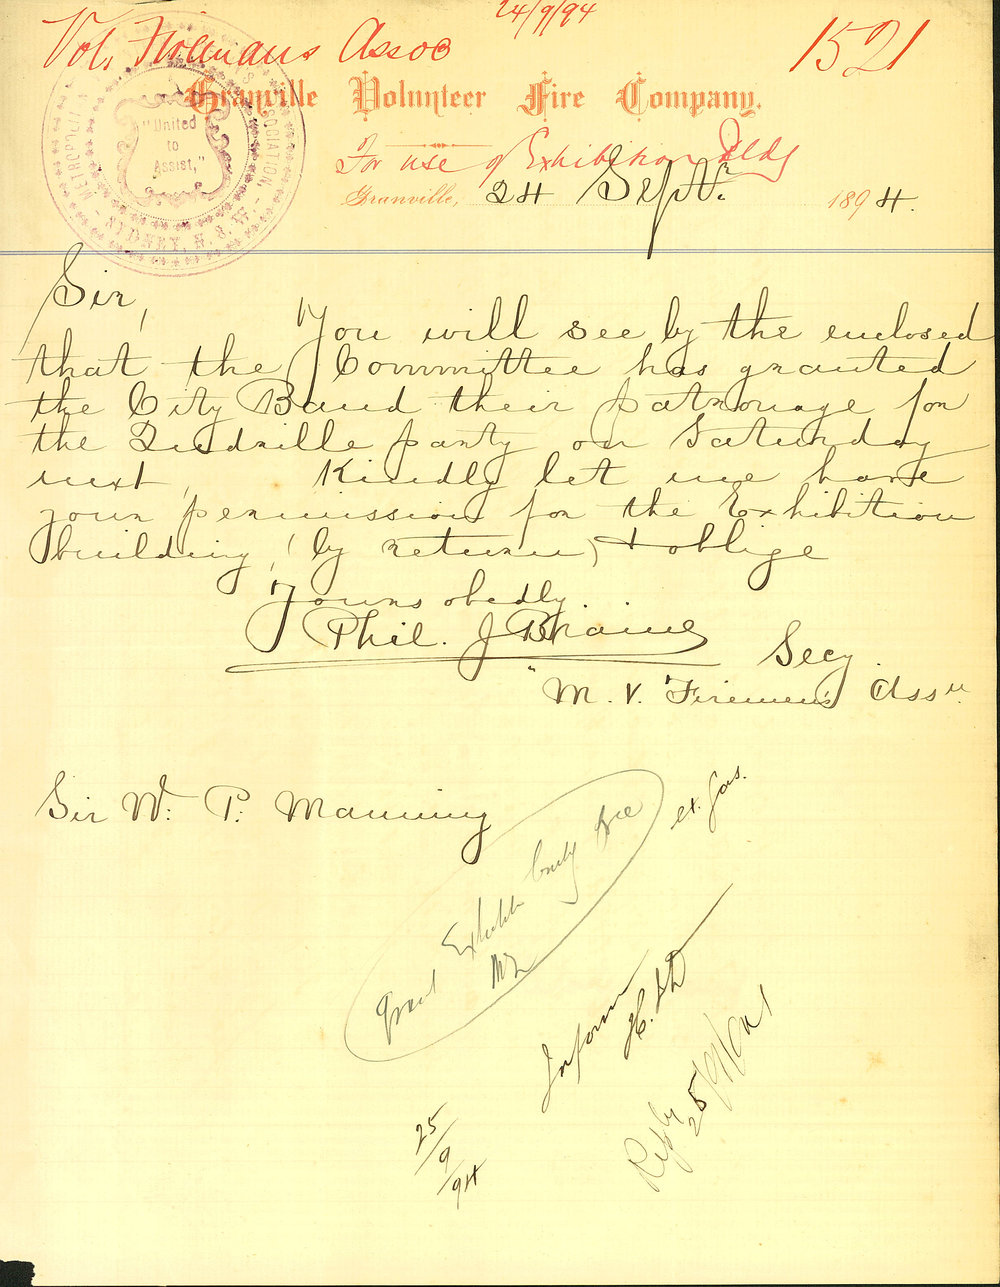 24/9/94
Vol. Firemans Assoc
1521
Granville Volunteer Fire Company.
METROPOLITAN ASSOCIATION,
SYDNEY, N. S. W.
"United
to
Assist,"
For use of Exhibition Bldg
Granville, 24 Septr. 1894.
Sir,
You will see by the enclosed
that the Committee has granted
the City Band their patronage for
the Quadrille party on Saturday
next, Kindly let me have
your permission for the Exhibition
building, (by return) & oblige
Yours obedly.
Phil. J
Secy.
"M. V. Firemen's Assn.
Sir W. P. Manning
Grant Exhibition Bldg free
ex. gas.
Inform
25/9/94
Reply 25/9/94